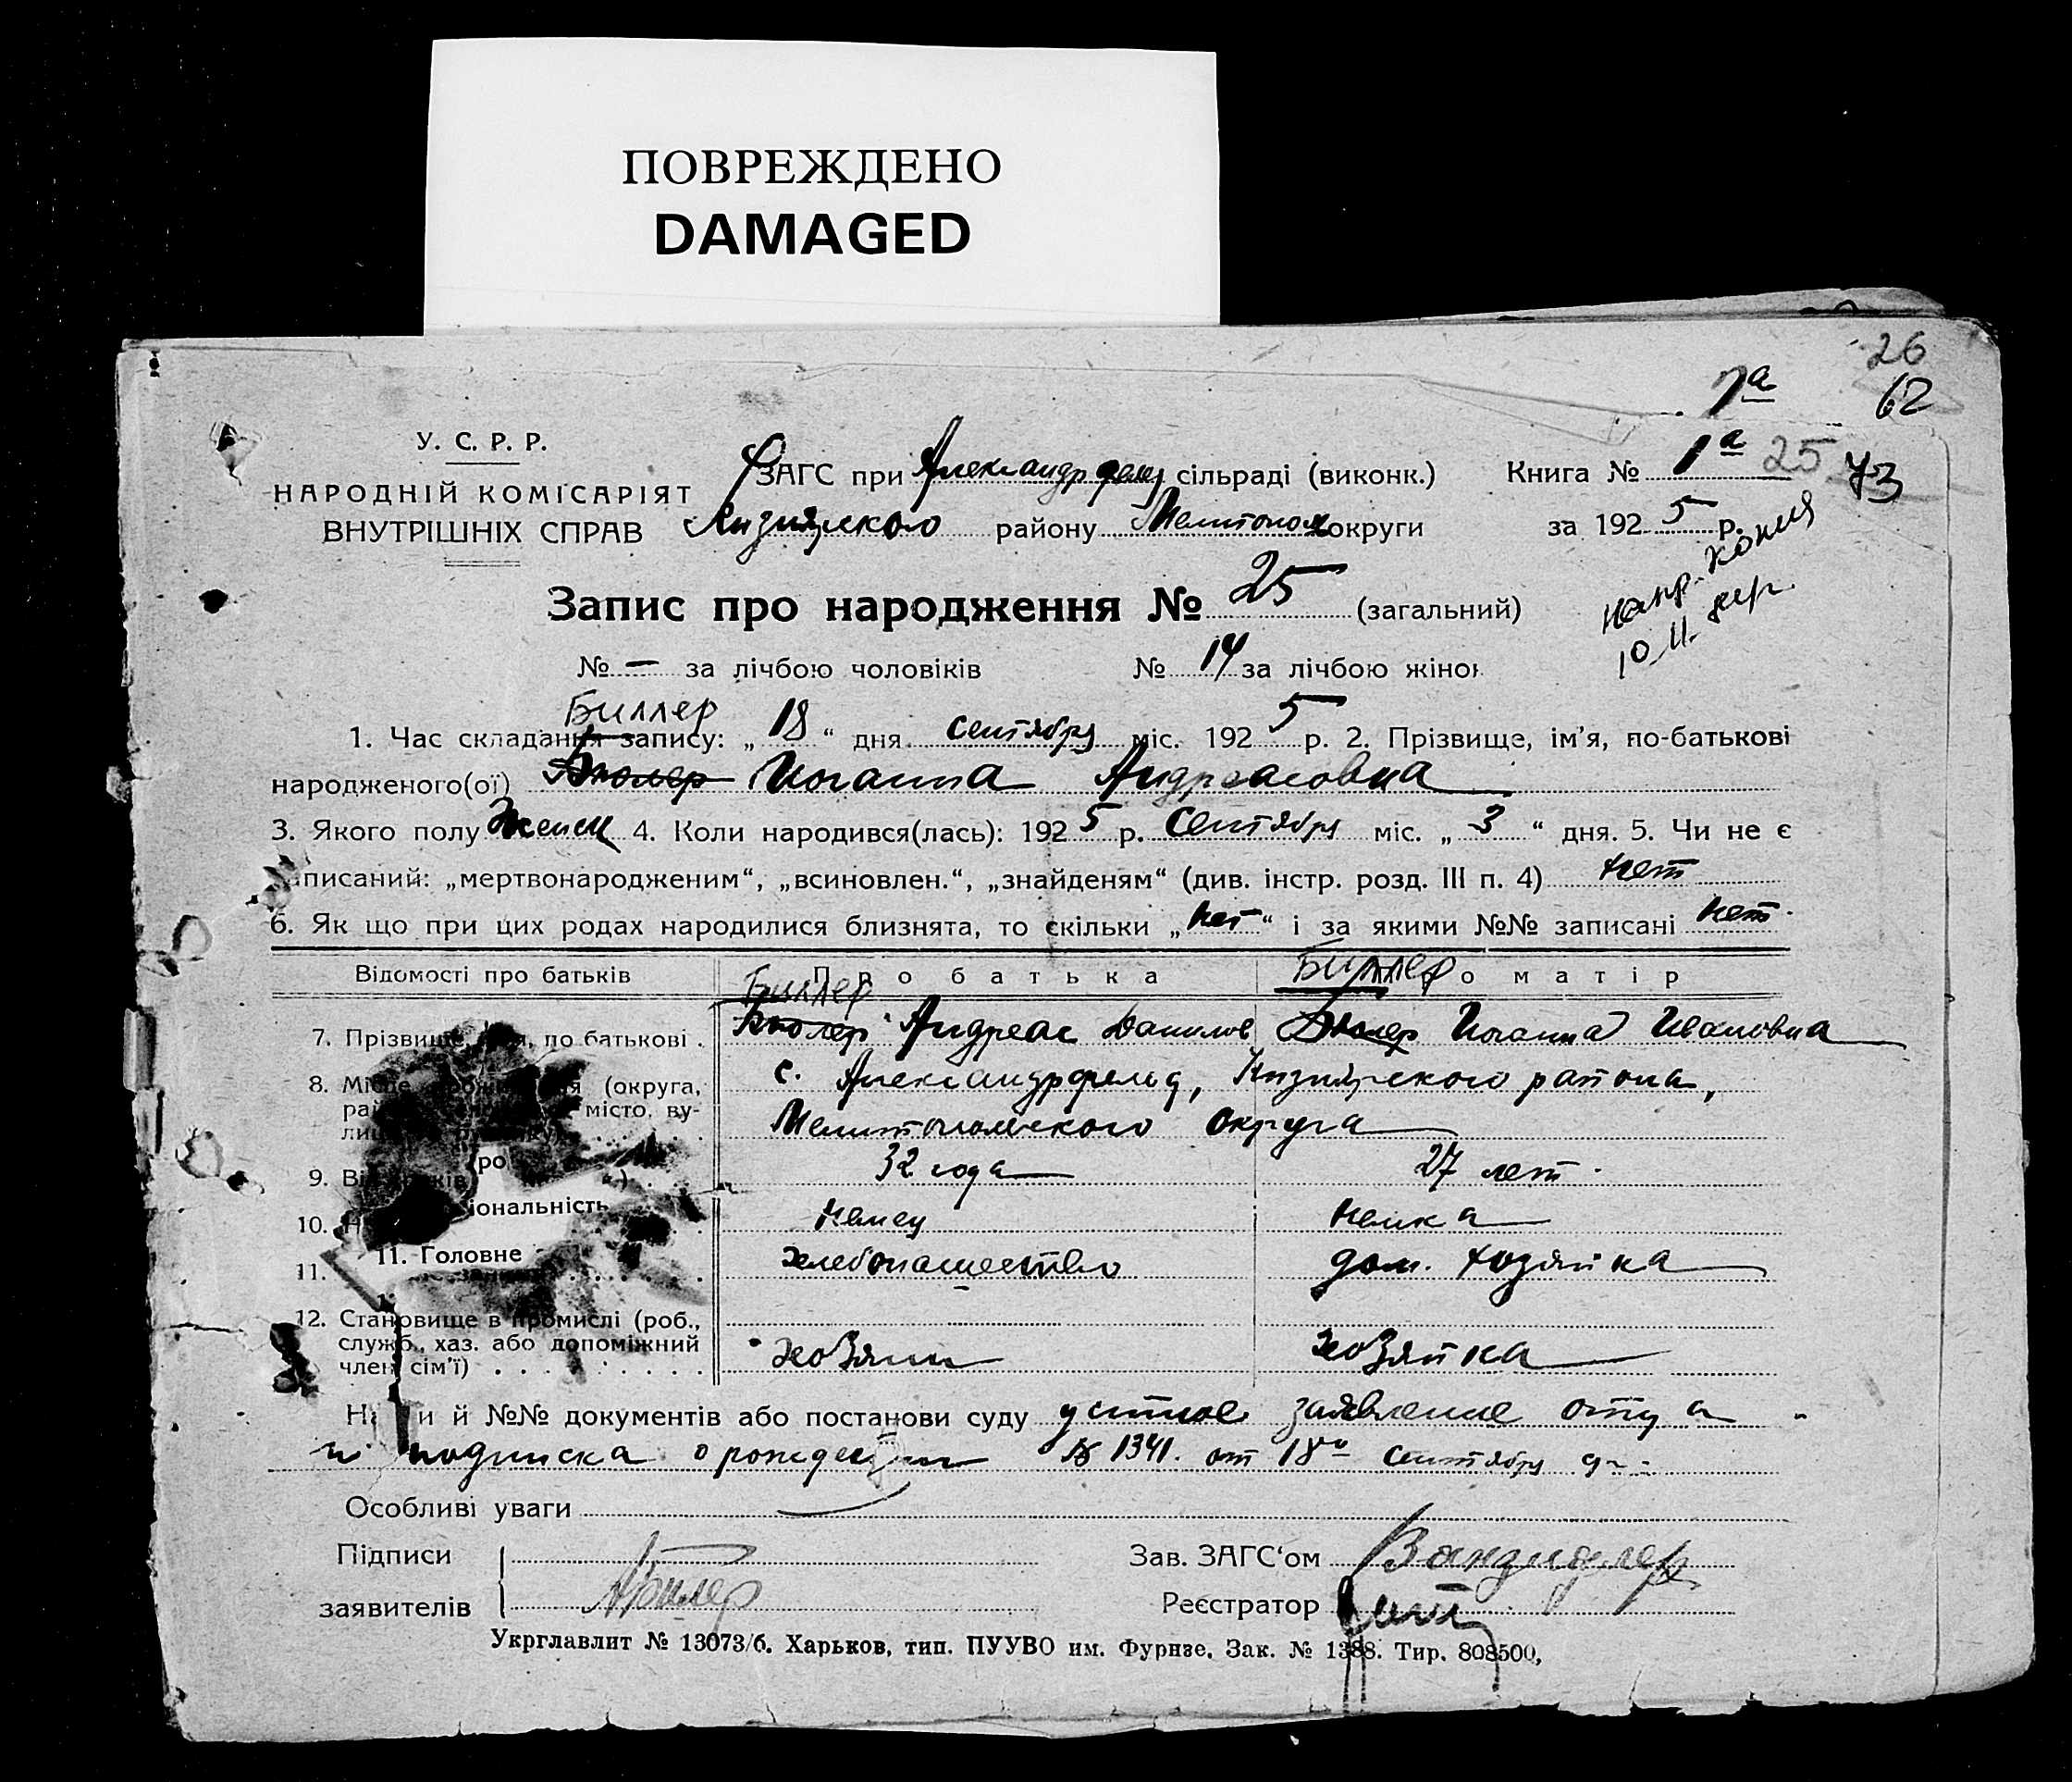 ПОВРЕЖДЕНО
DAMAGED
26
7а 62
У. С. Р. Р.
НАРОДНІЙ КОМІСАРІЯТ
ВНУТРІШНІХ СПРАВ
ЗАГС при Александрфельд сільраді (виконк.) Книга № 1а 25 73
района Мелитопол округи за 192 5 р.
Запис про народження № 25 (загальний)
копия
10 11.
№ — за лічбою чоловіків № 14 за лічбою жінок
Биллер
1. Час складання запису: „ 18 “ дня сентября міс. 192 5 р. 2. Прізвище, ім’я, по-батькові
народженого(ої) Иоганна Андреасовна
3. Якого полу Женск 4. Коли народився(лась): 192 5 р. Сентября міс. „ 3 “ дня. 5. Чи не є
записаний: „мертвонародженим“, „всиновлен.“, „знайденям“ (див. інстр. розд. III п. 4) нет
6. Як що при цих родах народилися близнята, то скільки „ нет “ і за якими №№ записані нет
Відомості про батьків Про батька Про матір
Биллер Биллер
7. Прізвище, ім’я, по батькові Андреас Данилов Иоганна Ивановна
8. Місце (округа, с. Александрфельд, района,
місто, ву- Мелитопольского округа
9. 32 года 27 лет
10. Національність немец немка
11. Головне хлебопашество дом. хозяйка
12. Становище в промислі (роб.,
служб., хаз. або допоміжний
член сім’ї) хозяин хозяйка
й №№ документів або постанови суду устное заявление отца
и подписка о рождении № 1341. от 18го сентября
Особливі уваги
Підписи
заявителів
Зав. ЗАГС‘ом
Реєстратор
Укрглавлит № 13073/б. Харьков, тип. ПУУВО им. Фурнзе. Зак. № 1388. Тир. 808500,